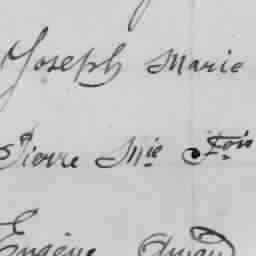 Joseph Marie
Pierre Mie Fois
Eugène Amand